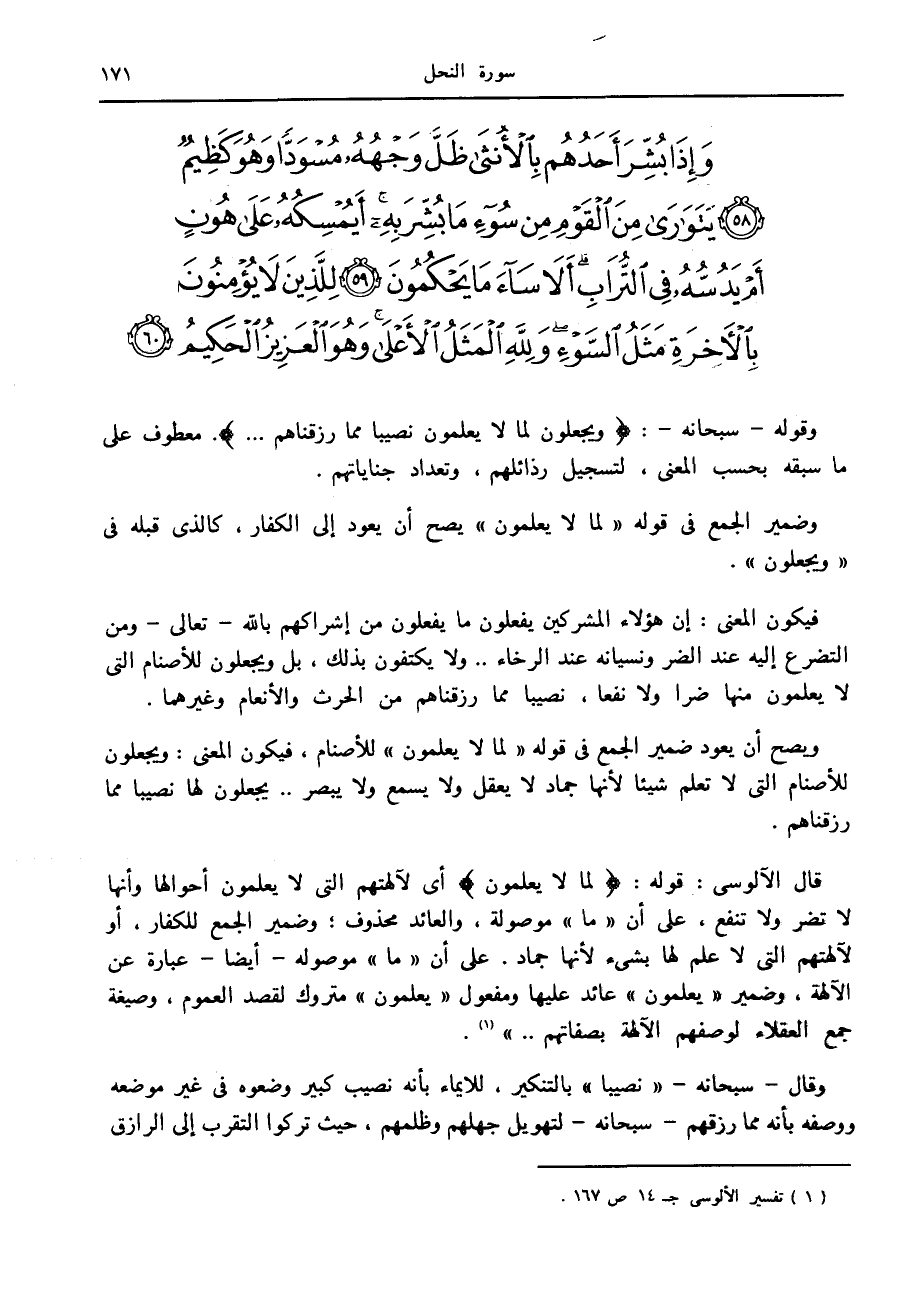 سورة النحل ١٧١
وَإِذَا بُشِّرَ أَحَدُهُم بِٱلْأُنثَىٰ ظَلَّ وَجْهُهُۥ مُسْوَدًّا وَهُوَ كَظِيمٌ
٥٨ يَتَوَٰرَىٰ مِنَ ٱلْقَوْمِ مِن سُوٓءِ مَا بُشِّرَ بِهِۦٓ ۚ أَيُمْسِكُهُۥ عَلَىٰ هُونٍ
أَمْ يَدُسُّهُۥ فِى ٱلتُّرَابِ ۗ أَلَا سَآءَ مَا يَحْكُمُونَ ٥٩ لِلَّذِينَ لَا يُؤْمِنُونَ
بِٱلْأَخِرَةِ مَثَلُ ٱلسَّوْءِ ۖ وَلِلَّهِ ٱلْمَثَلُ ٱلْأَعْلَىٰ ۚ وَهُوَ ٱلْعَزِيزُ ٱلْحَكِيمُ ٦٠
وقوله – سبحانه – : ﴿ ويجعلون لما لا يعلمون نصيبا مما رزقناهم ... ﴾. معطوف على
ما سبقه بحسب المعنى ، لتسجيل رذائلهم ، وتعداد جناياتهم .
وضمير الجمع فى قوله « لما لا يعلمون » يصح أن يعود إلى الكفار ، كالذى قبله فى
« ويجعلون » .
فيكون المعنى : إن هؤلاء المشركين يفعلون ما يفعلون من إشراكهم بالله – تعالى – ومن
التضرع إليه عند الضر ونسيانه عند الرخاء .. ولا يكتفون بذلك ، بل ويجعلون للأصنام التى
لا يعلمون منها ضرا ولا نفعا ، نصيبا مما رزقناهم من الحرث والأنعام وغيرهما .
ويصح أن يعود ضمير الجمع فى قوله « لما لا يعلمون » للأصنام ، فيكون المعنى : ويجعلون
للأصنام التى لا تعلم شيئا لأنها جماد لا يعقل ولا يسمع ولا يبصر .. يجعلون لها نصيبا مما
رزقناهم .
قال الآلوسى : قوله : ﴿ لما لا يعلمون ﴾ أى لآلهتهم التى لا يعلمون أحوالها وأنها
لا تضر ولا تنفع ، على أن « ما » موصولة ، والعائد محذوف ؛ وضمير الجمع للكفار ، أو
لآلهتهم التى لا علم لها بشىء لأنها جماد . على أن « ما » موصوله – أيضا – عبارة عن
الآلهة ، وضمير « يعلمون » عائد عليها ومفعول « يعلمون » متروك لقصد العموم ، وصيغة
جمع العقلاء لوصفهم الآلهة بصفاتهم .. » (١) .
وقال – سبحانه – « نصيبا » بالتنكير ، للايماء بأنه نصيب كبير وضعوه فى غير موضعه
ووصفه بأنه مما رزقهم – سبحانه – لتهويل جهلهم وظلمهم ، حيث تركوا التقرب إلى الرازق
( ١ ) تفسير الألوسى جـ ١٤ ص ١٦٧ .